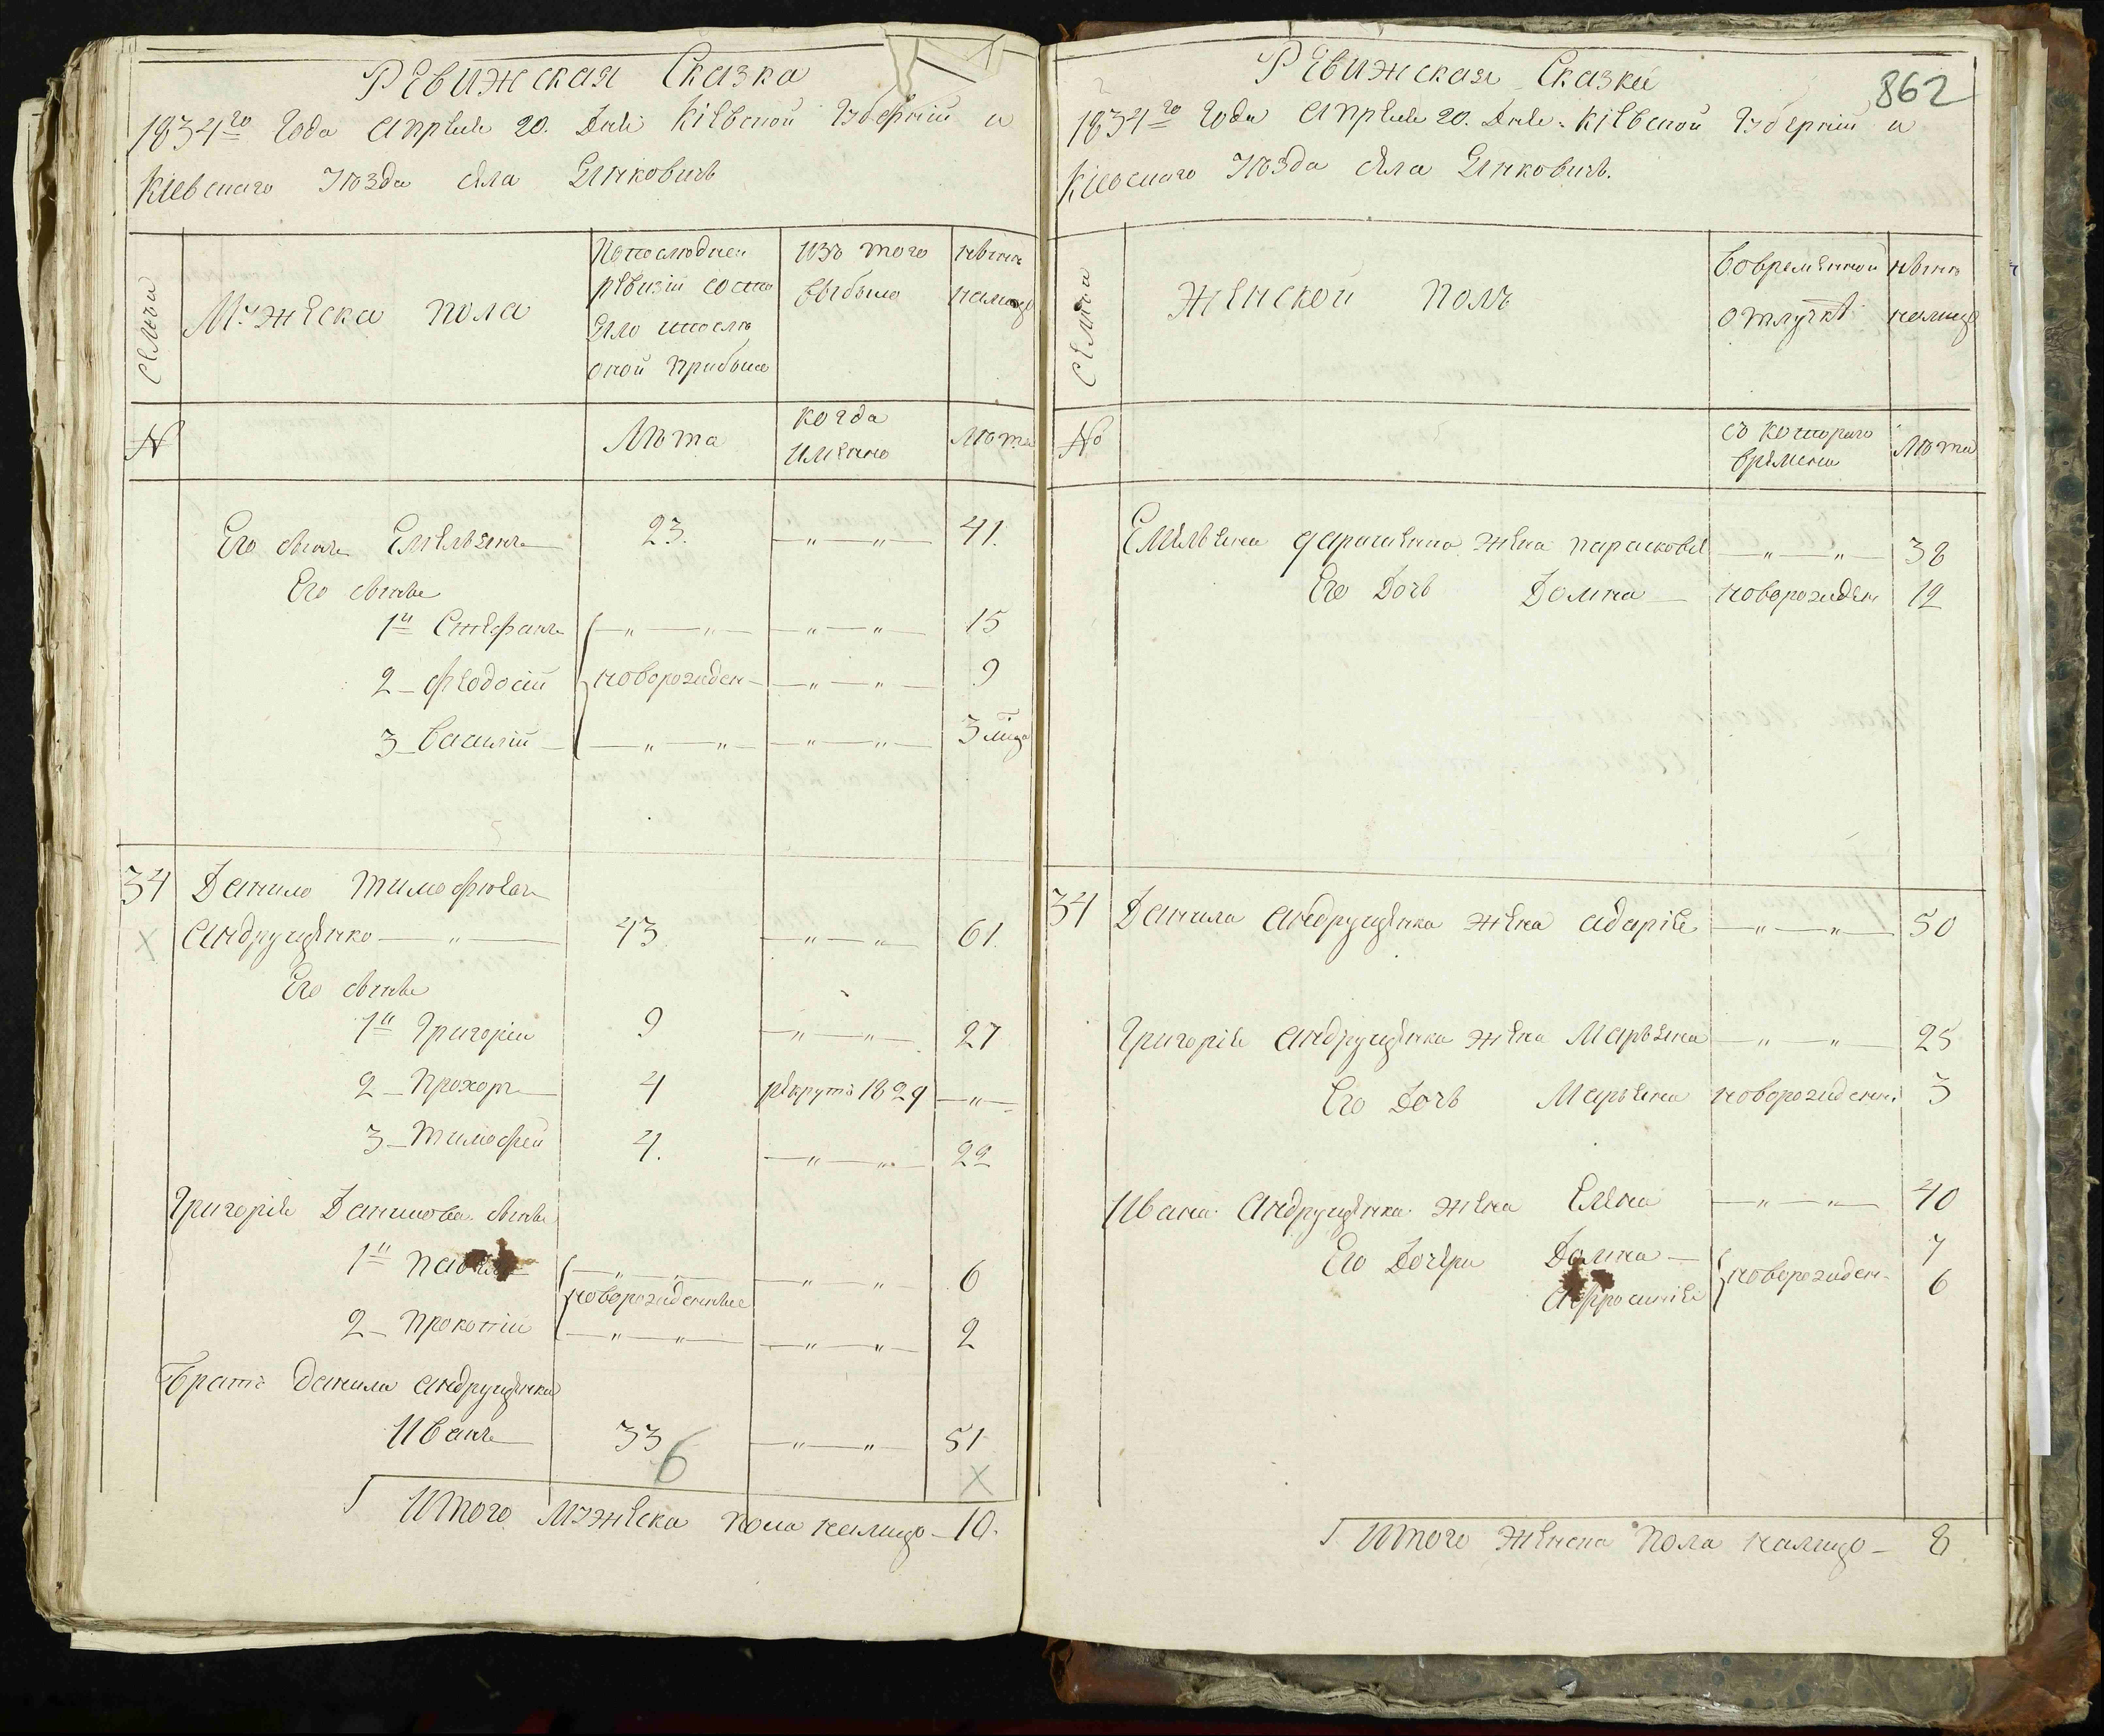 Ревижская Сказка
1834го года Апреля 20. Дня Кіевской Губерніи и
Кіевскаго Уѣзда села Янковичь
Семьи
Мужеска пола
По последней
ревизіи состо
яло и после
оной прибыло
изъ того
выбыло
нынѣ
налицо
№
Лѣта
когда
имянно
Лѣта
Его сынъ Емельянъ 23. 41.
Его сынове
1й Стефанъ 15
2 Феодосій новорожден 9
3 Василій 3 мца
34 Данило Тимофѣевъ
Андрущенко 43 61.
Его сынове
1й Григорій 9 27
2 Прохоръ 4 рекрутъ 1829
3 Тимофей 4. 22
Григорія Данилова сынове
1й 6
новорожденные
2 Прокопій 2
Братъ Данила Андрущенка
Иванъ 33 51
6
Итого мужеска пола налицо 10.
862
Ревижская Сказка
1834го года Апреля 20. Дня Кіевской Губерніи и
Кіевскаго Уѣзда села Янковичь.
Семьи
Женской полъ
Вовременной
отлучкѣ
нынѣ
налицо
№
съ котораго
времени
Лѣта
Емельяна жена Парасковія 38
Его Дочь Домна новорожден 12
34 Данила Андрущенка жена Адарія 50
Григорія Андрущенка жена Марьяна 25
Его Дочь Марьяна новорожденн. 3
Ивана Андрущенка жена Елена 40
Его Дочери Домна 7
новорожден
6
Итого женска пола налицо 8